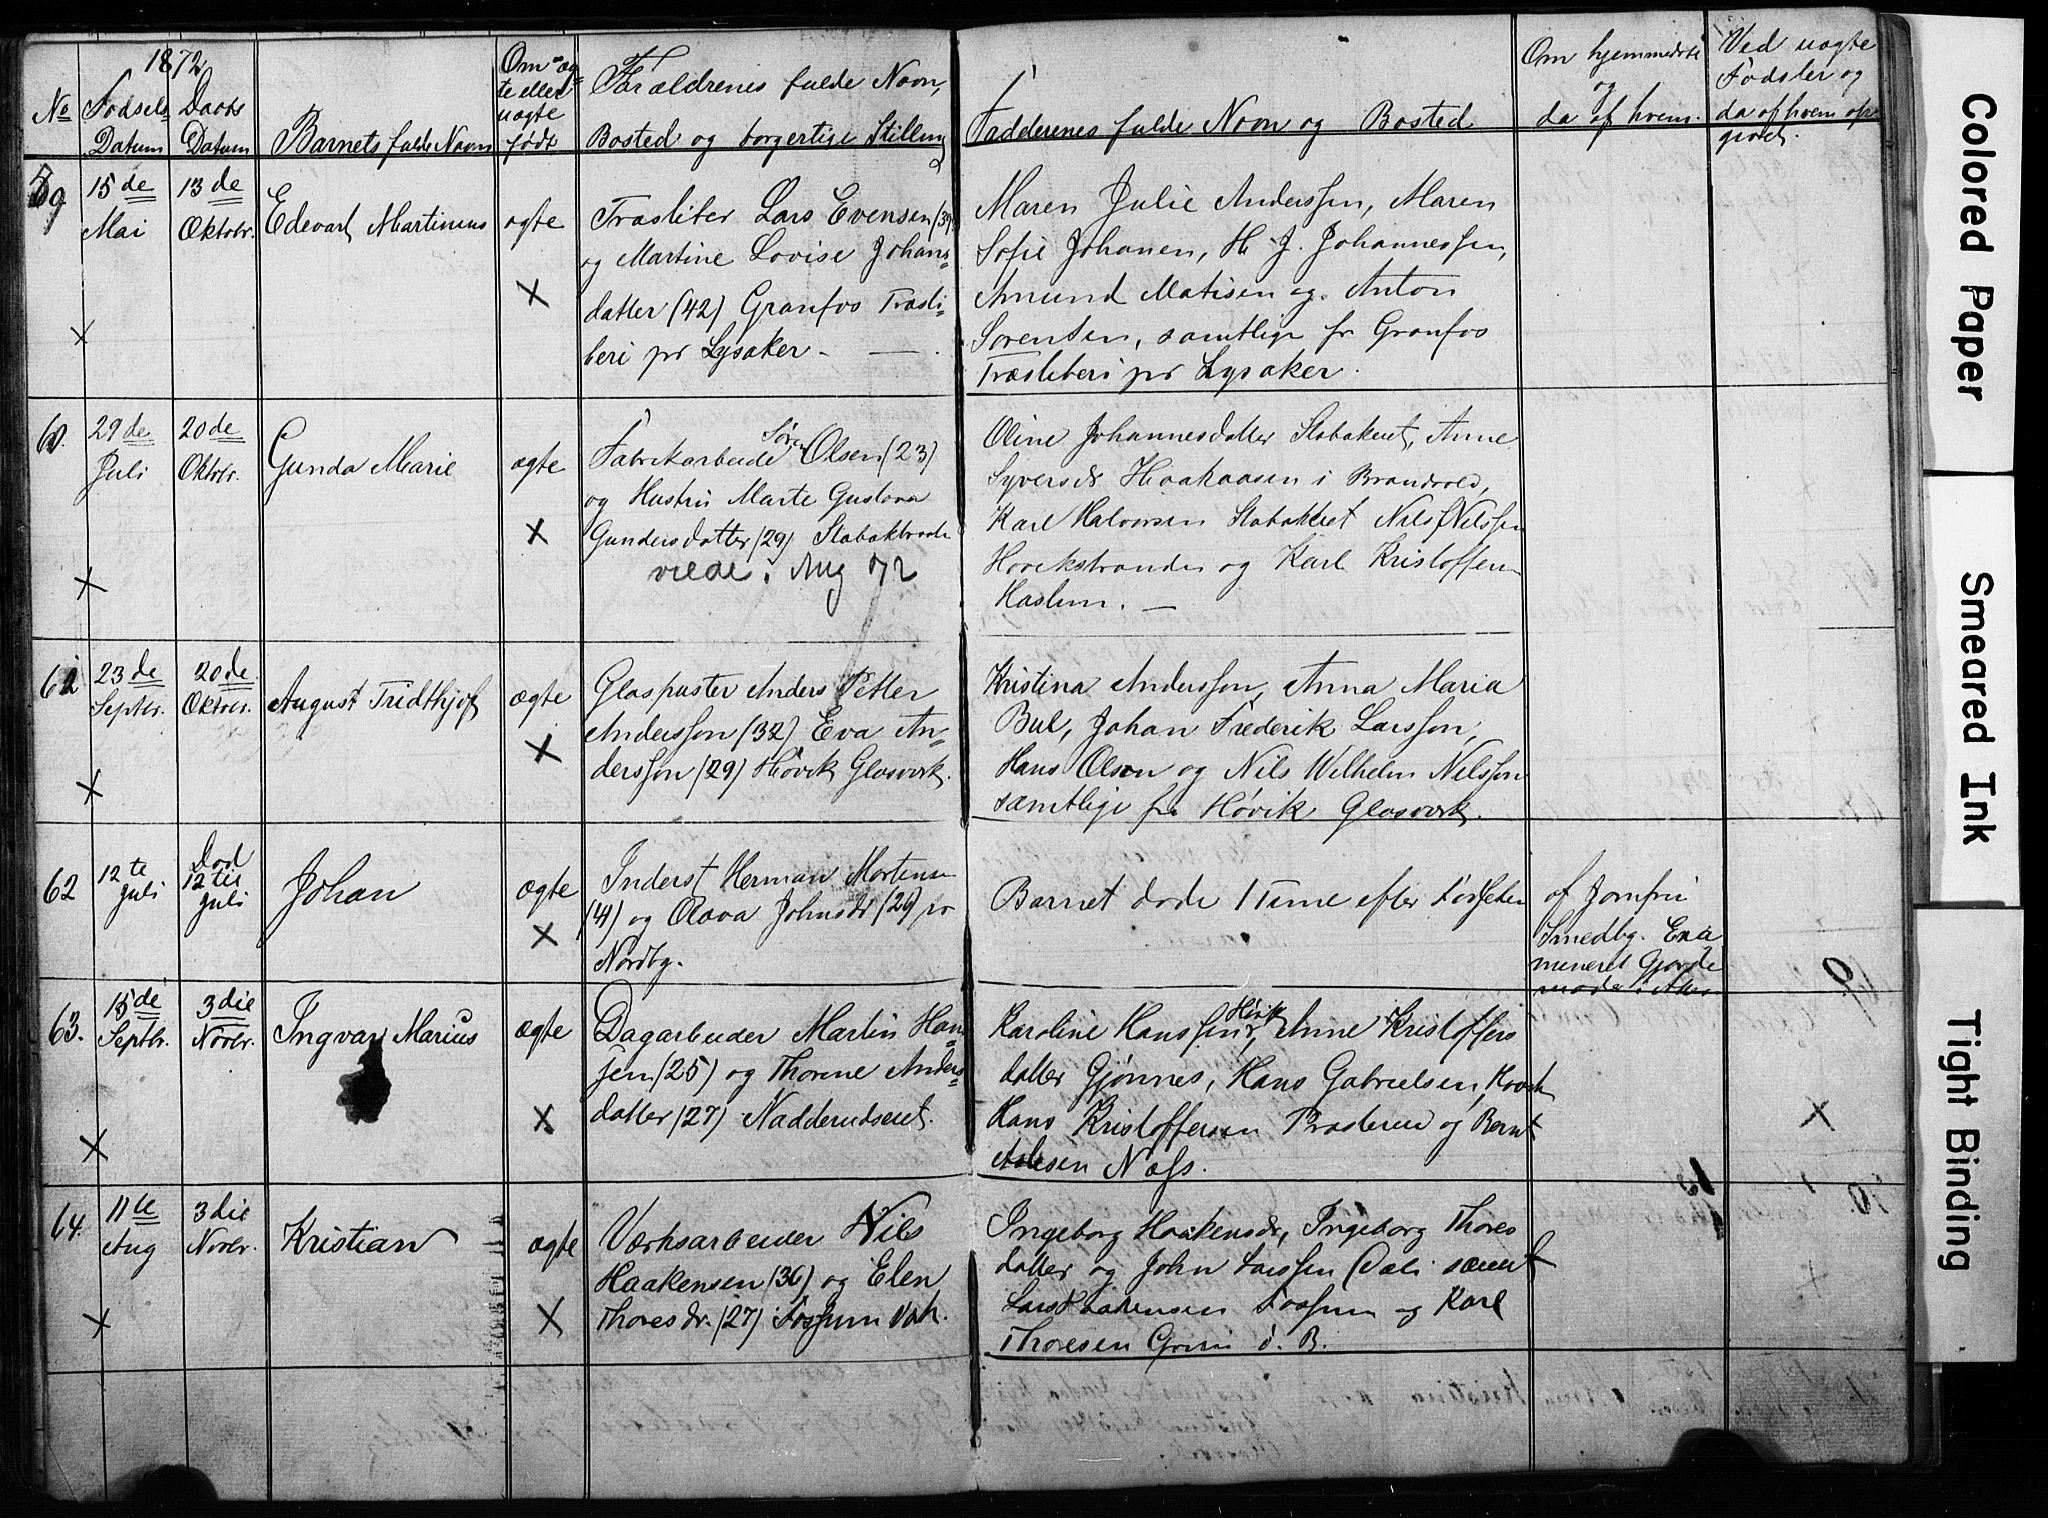 1872
No
Fødsels Datum
Daabs Datum
Barnets fulde Navn
Om æg-
te eller
uægte
født
Forældrenes fulde Navn,
Bosted og borgerlige Stilling
Faddernes fulde Navn og Bosted
Om hjemmedøbt
og
da af hvem.
Ved uægte
Fødsler og
da af hvem op-
givet.
59
15de
Mai
13de
Oktobr.
Edevart Martinius
ægte
Træsliber Lars Evensen (39)
og Martine Lovise Johans-
datter (42) Granfos Træsli-
beri pr Lysaker.
Maren Julie Anderssen, Maren
Sofie Johansen, H. J. Johannessen,
Amund Matisen og Anton
Sørensen, samtlige fr Granfos
Træsliberi pr Lysaker.
60.
29de
Juli
20de
Oktobr.
Gunda Marie
ægte
Fabrikarbeide Søren Olsen (23)
og Hustru Marte Gustava
Gundersdatter (29) Stabækbraaten
viede i Aug 72
Oline Johannesdatter Stabækeiet, Anne
Syversdr Haakaasen i Brandvold,
Karl Halvorsen Stabækeiet Nils Nilssen
Høvikstranden og Karl Kristoffersen
Haslum.
61
23de
Septbr.
20de
Oktobr.
August Fridthjof
ægte
Glaspuster Anders Petter
Andersson (32) Eva An-
dersson (29) Høvik Glasværk.
Kristina Andersson, Anna Maria
Bul, Johan Frederik Larsson,
Hans Olsen og Nils Wilhelm Nilsson
samtlige fra Høvik Glasværk.
62
12te
Juli
Død
12te
Juli
Johan
ægte
Inderst Herman Mortensen
(41) og Olava Johnsdr (26) pr
Nordby.
Barnet døde 1 Time efter Fødselen
af Jomfru
Smedbg. Exa
mineret Gjorde
moder i Aker
63.
15de
Septbr.
3die
Novbr.
Ingvar Marius
ægte
Dagarbeider Martin Han-
sen (25) og Thorine Anders-
datter (27) Nadderudseiet.
Karoline Hanssen, Høvik, Anne Kristoffers
datter Gjønnes, Hans Gabrielsen, Høvik
Hans Kristoffersen Presterud og Bernt
Aslesen Næss.
64.
11te
Aug
3die
Novbr.
Kristian
ægte
Værksarbeider Nils
Haakensen (36) og Elen
Thoresdr. (27) Fossum Værk.
Ingeborg Haakensdr, Ingeborg Thores
datter og John Larssen Dæli samt
Lars Haakensen Fossum og Karl
Thoresen Grini ø. B.
Colored Paper
Smeared Ink
Tight Binding